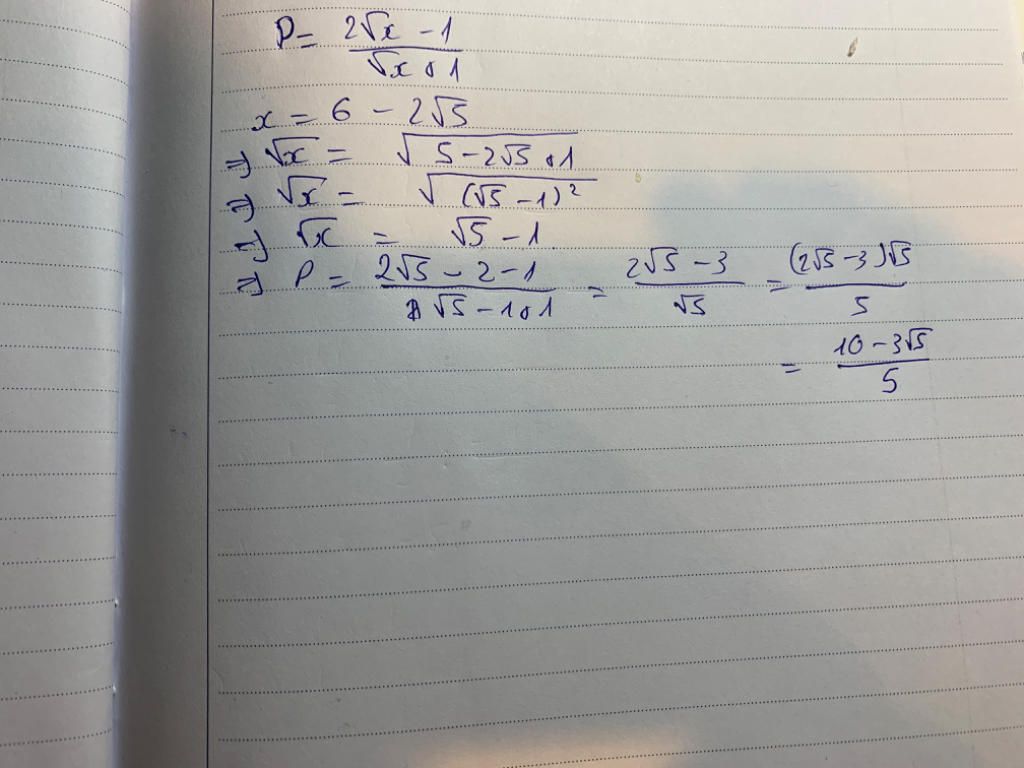 P = \frac{2\sqrt{x} - 1}{\sqrt{x} + 1}
x = 6 - 2\sqrt{5}
=> \sqrt{x} = \sqrt{5 - 2\sqrt{5} + 1}
=> \sqrt{x} = \sqrt{(\sqrt{5} - 1)^2}
=> \sqrt{x} = \sqrt{5} - 1
=> P = \frac{2\sqrt{5} - 2 - 1}{\sqrt{5} - 1 + 1} = \frac{2\sqrt{5} - 3}{\sqrt{5}} = \frac{(2\sqrt{5} - 3)\sqrt{5}}{5}
= \frac{10 - 3\sqrt{5}}{5}